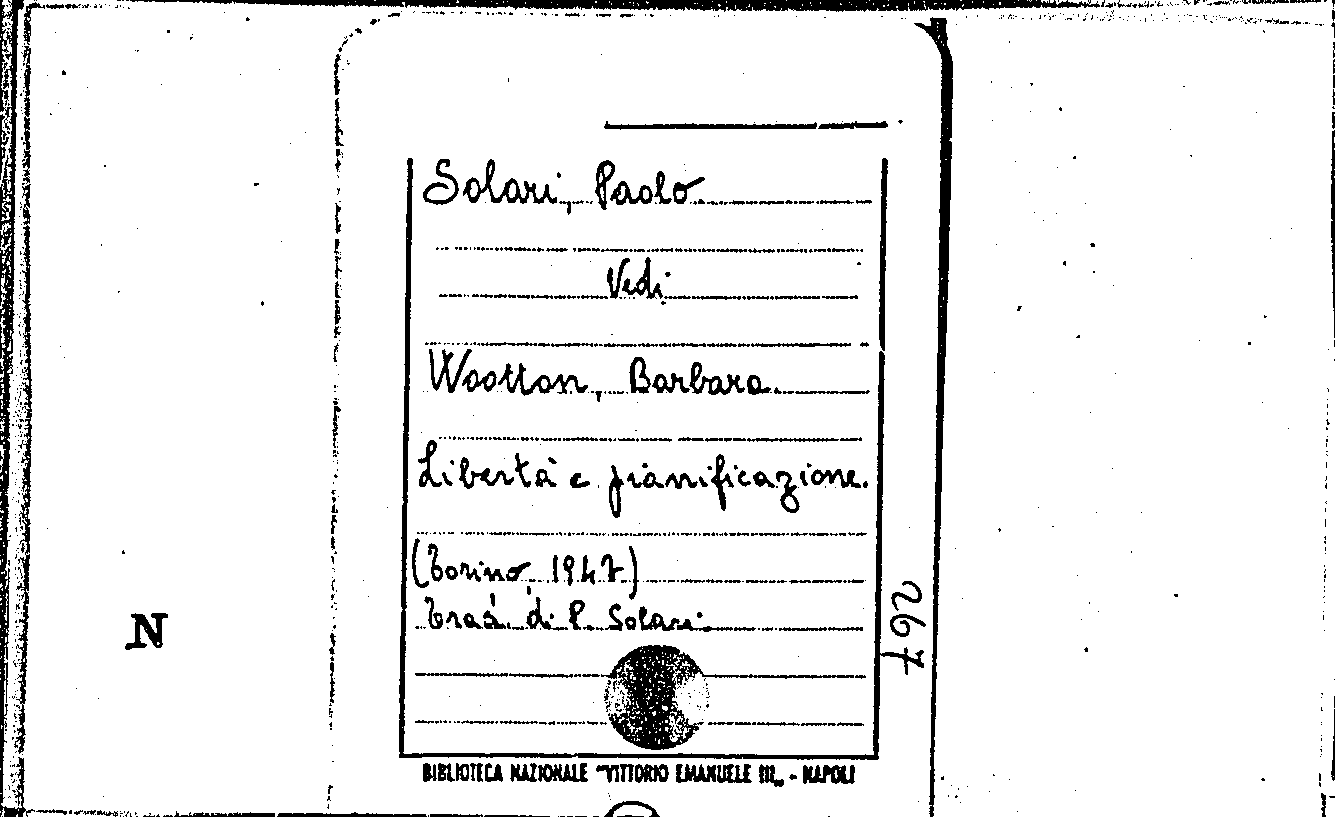 Solari, Paolo.
Vedi
Wootton, Barbara.
Libertà e pianificazione.
(Torino, 1947)
Trad. di P. Solari.
267
N
BIBLIOTECA NAZIONALE "VITTORIO EMANUELE III„ - NAPOLI